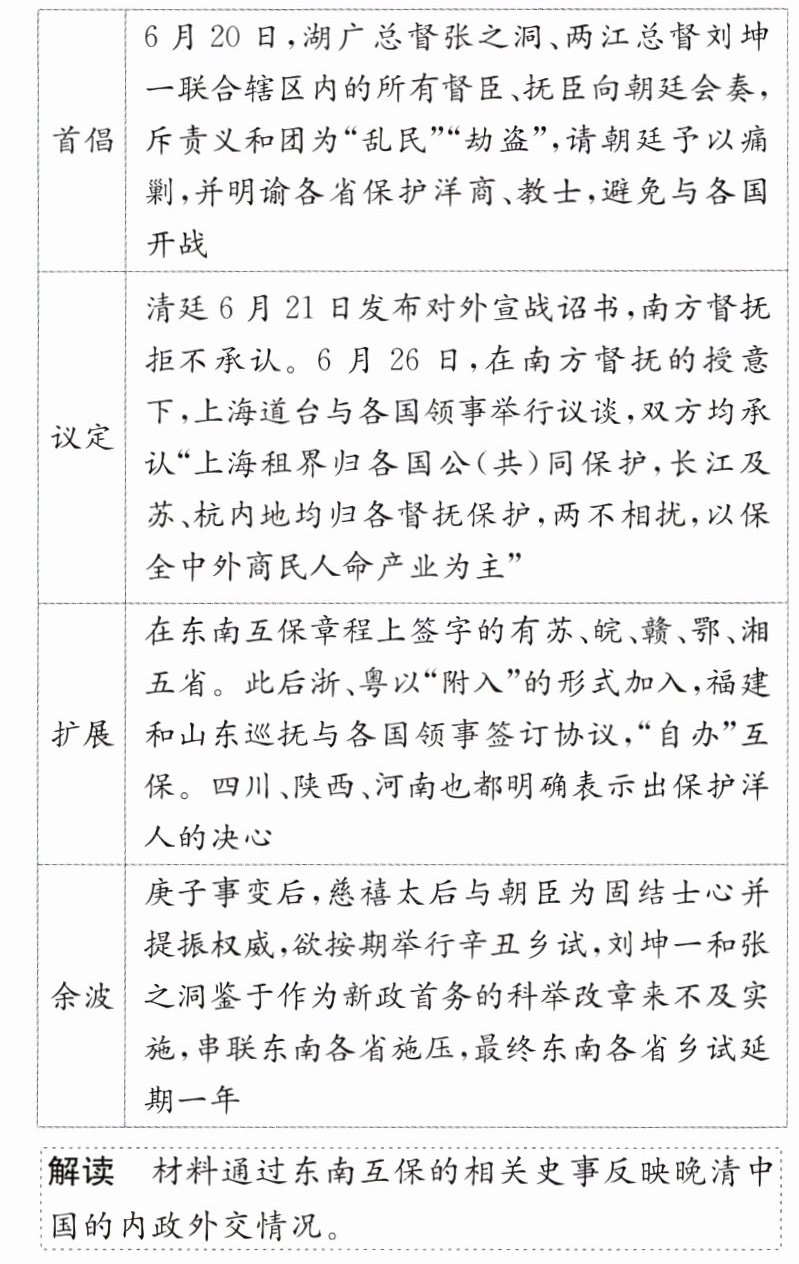 首倡
6月20日，湖广总督张之洞、两江总督刘坤
一联合辖区内的所有督臣、抚臣向朝廷会奏，
斥责义和团为“乱民”“劫盗”，请朝廷予以痛
剿，并明谕各省保护洋商、教士，避免与各国
开战
议定
清廷6月21日发布对外宣战诏书，南方督抚
拒不承认。6月26日，在南方督抚的授意
下，上海道台与各国领事举行议谈，双方均承
认“上海租界归各国公(共)同保护，长江及
苏、杭内地均归各督抚保护，两不相扰，以保
全中外商民人命产业为主”
扩展
在东南互保章程上签字的有苏、皖、赣、鄂、湘
五省。此后浙、粤以“附入”的形式加入，福建
和山东巡抚与各国领事签订协议，“自办”互
保。四川、陕西、河南也都明确表示出保护洋
人的决心
余波
庚子事变后，慈禧太后与朝臣为固结士心并
提振权威，欲按期举行辛丑乡试，刘坤一和张
之洞鉴于作为新政首务的科举改章来不及实
施，串联东南各省施压，最终东南各省乡试延
期一年
解读 材料通过东南互保的相关史事反映晚清中
国的内政外交情况。